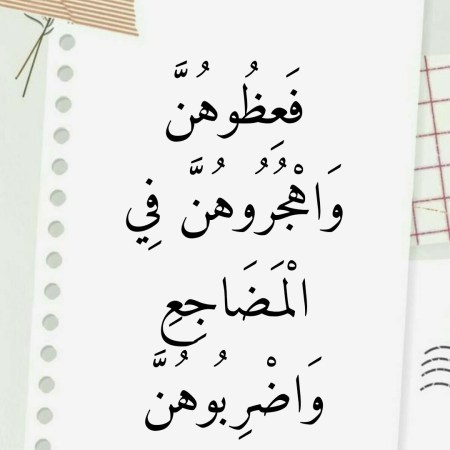 فَعِظُوهُنَّ
وَاهْجُرُوهُنَّ فِي
الْمَضَاجِعِ
وَاضْرِبُوهُنَّ